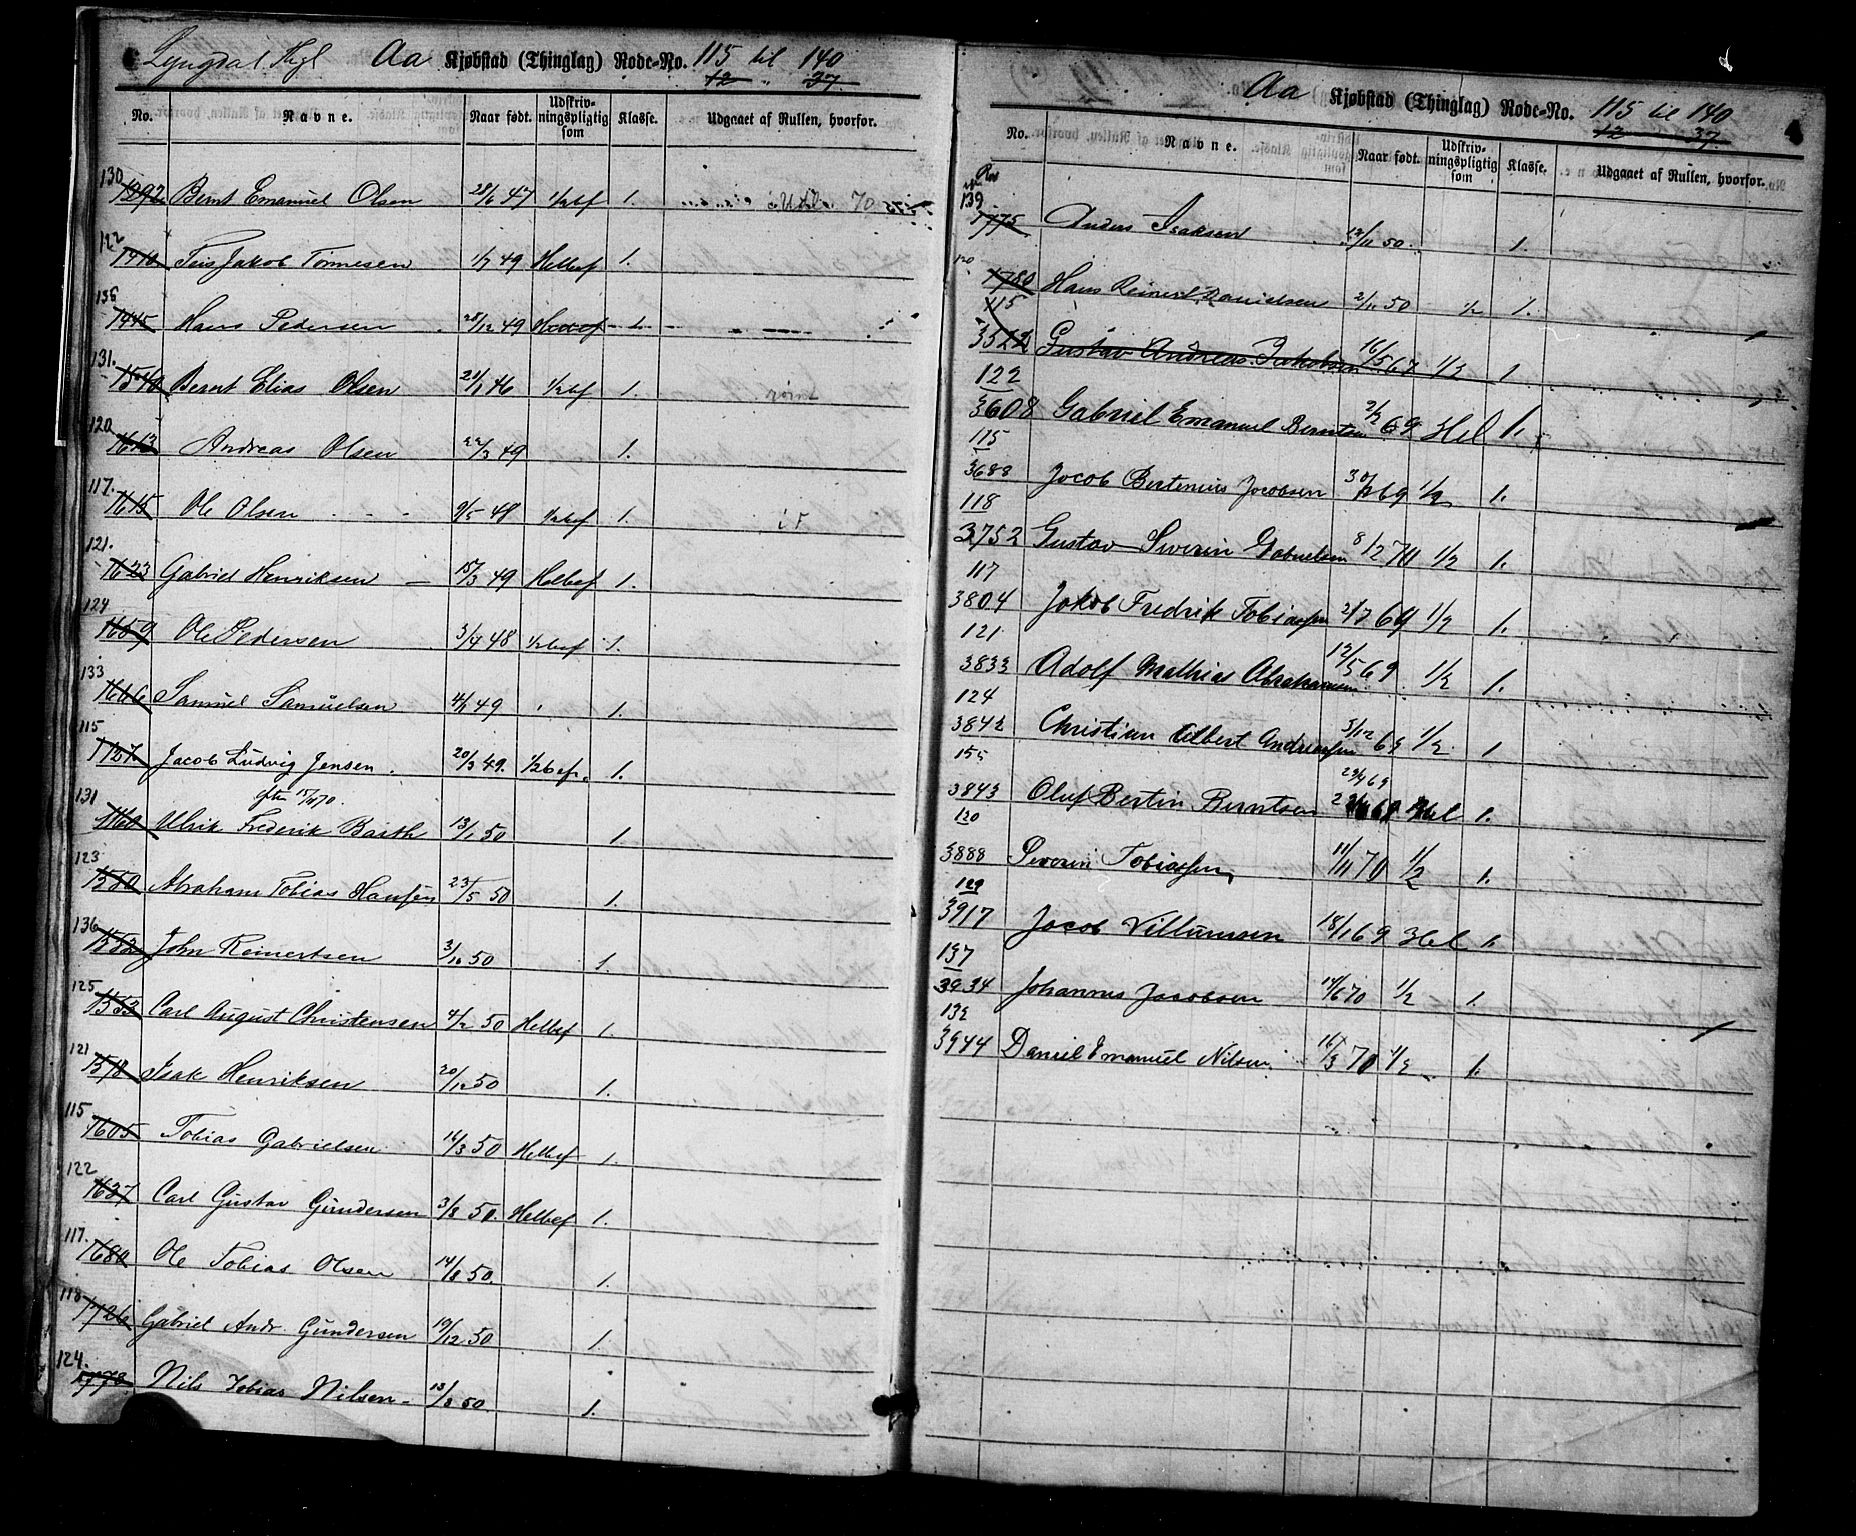 Lyngdal Thgl Aa Kjøbstad (Thinglag) Rode-No. 115 til 140
12 " 37.
No. Navne. Naar født. Udskrivningspligtig som Klasse. Udgaaet af Rullen, hvorfor.
130
1292 Bernt Emanuel Olsen 28/6 47 1/2bf 1. 70
122
1410 Jakob Tønnesen 1/7 49 Helbef 1.
136
1445 Hans Pedersen 28/12 49 1.
131.
1540 Bernt Elias Olsen 21/1 46 1/2bf 1. rømt
120
1613 Andreas Olsen 22/3 49 1.
117.
1615 Ole Olsen 9/5 48 1/2bef 1.
121.
1623 Gabriel Henriksen 15/3 49 Helbef 1.
124
1659 Ole Pedersen 3/4 48 1/2bef 1.
133
1666 Samuel Samuelsen 4/1 49 1.
115
1127 Jacob Ludvig Jensen. 20/3 49. 1/2bef. 1.
131
1160 Ulrik Frederik Barth 13/1 50 1.
123
1580 Abraham Tobias Hansen 23/5 50 1.
136
1552 John Reinertsen 3/10 50 1.
125
1553 Carl August Christensen 4/2 50 Helbef 1.
121
1578 Isak Henriksen 20/12 50 1.
115
1605 Tobias Gabrielsen 14/3 50 Helbef 1.
122
1637 Carl Gustav Gundersen 3/8 50. Helbef 1.
117.
1680 Ole Tobias Olsen 14/8 50. 1.
118
1726 Gabriel Andr. Gundersen 19/12 50 1.
124.
1778 Nils Tobias Nilsen 13/8 50. 1.
Aa Kjøbstad (Thinglag) Rode-No. 115 til 140
12 37.
No. Navne. Naar født. Udskrivningspligtig som Klasse. Udgaaet af Rullen, hvorfor.
139
1775 Anders Isaksen 50. 1.
120
1780 Hans Reinert Danielsen 2/11 50 1/2 1.
115
3522 Gustav Andreas Jakobsen 16/5 67 1/2 1
122
3608 Gabriel Emanuel Berntsen 2/2 69 Hel 1.
115
3688 Jocob Bertinius Jocobsen 69 1/2 1.
118
3752 Gustav Severin Gabrielsen 8/2 70 1/2 1.
117
3804 Jokob Fredrik Tobiassen 2/7 69 1/2 1.
121
3833 Adolf Mathias Abrahamsen 12/5 69 1/2 1.
124
3842 Christian Albert Andreassen 5/12 69 1/2. 1
135
29/4 69
3843 Oluf Bertin Berntsen Hel 1.
120
3888 Severin Tobiassen 11/11 70 1/2 1.
129
3917 Jacob Villumsen 18/1 69 Hel 1.
137
3934 Johannes Jacobsen 14/6 70 1/2 1.
132
3944 Daniel Emanuel Nilsen. 16/3 70 1/2 1.